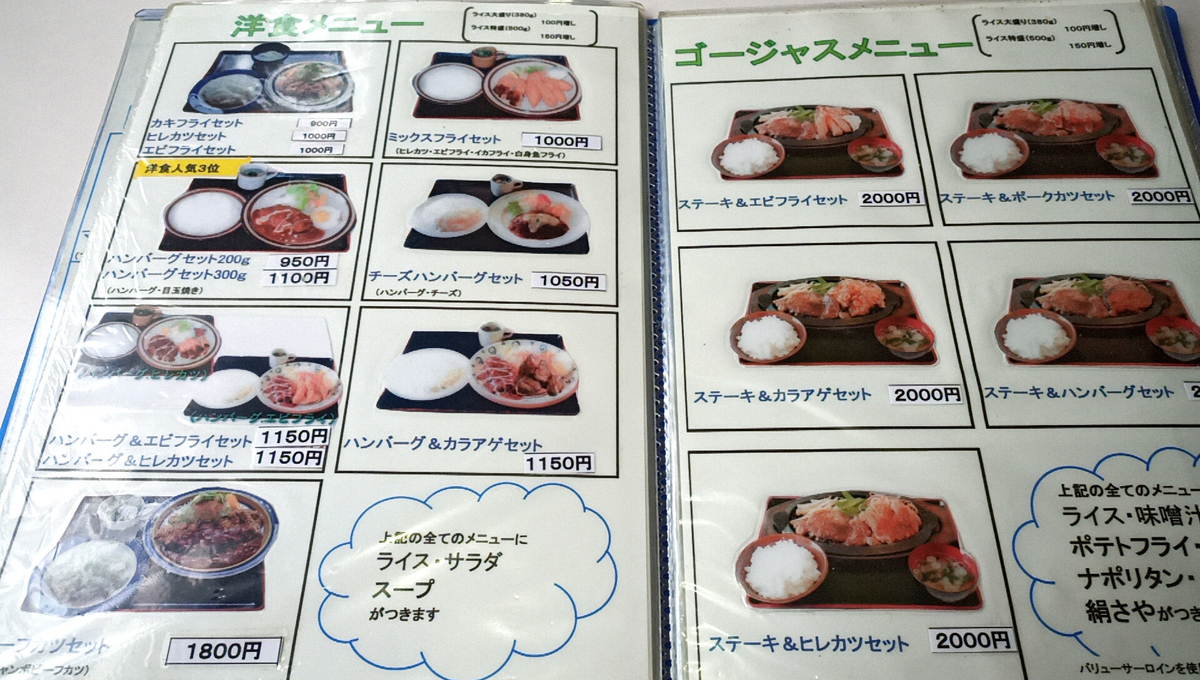 洋食メニュー
ライス大盛り(380g) 100円増し
ライス特盛(500g) 150円増し
カキフライセット 900円
ヒレカツセット 1000円
エビフライセット 1000円
ミックスフライセット 1000円
(ヒレカツ・エビフライ・イカフライ・白身魚フライ)
洋食人気3位
ハンバーグセット200g 950円
ハンバーグセット300g 1100円
(ハンバーグ・目玉焼き)
チーズハンバーグセット 1050円
(ハンバーグ・チーズ)
(ハンバーグ・ヒレカツ)
(ハンバーグ・エビフライ)
ハンバーグ&エビフライセット 1150円
ハンバーグ&ヒレカツセット 1150円
ハンバーグ&カラアゲセット
1150円
ーフカツセット 1800円
ャンボビーフカツ)
上記の全てのメニューに
ライス・サラダ
スープ
がつきます
ゴージャスメニュー
ライス大盛り(380g) 100円増し
ライス特盛(500g) 150円増し
ステーキ&エビフライセット 2000円
ステーキ&ポークカツセット 2000円
ステーキ&カラアゲセット 2000円
ステーキ&ハンバーグセット 2
ステーキ&ヒレカツセット 2000円
上記の全てのメニュー
ライス・味噌汁
ポテトフライ・
ナポリタン・
絹さやがつき
バリューサーロインを使